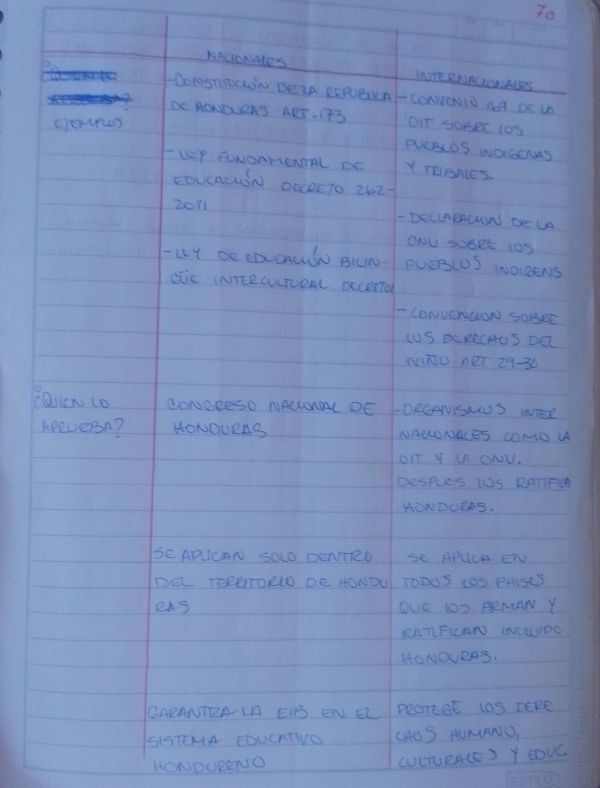 70
NACIONALES
INTERNACIONALES
EJEMPLOS
- CONSTITUCIÓN DE LA REPUBLICA
DE HONDURAS ART. 173
- LEY FUNDAMENTAL DE
EDUCACIÓN DECRETO 262-
2011
- LEY DE EDUCACIÓN BILIN-
GÜE INTERCULTURAL DECRETO
- CONVENIO 169 DE LA
OIT SOBRE LOS
PUEBLOS INDIGENAS
Y TRIBALES.
- DECLARACION DE LA
ONU SOBRE LOS
PUEBLOS INDIGENS
- CONVENCION SOBRE
LOS DERECHOS DEL
NIÑO ART 29-30
¿QUIEN LO
APRUEBA?
CONGRESO NACIONAL DE
HONDURAS
- ORGANISMOS INTER
NACIONALES COMO LA
OIT Y LA ONU.
DESPUES LOS RATIFICA
HONDURAS.
SE APLICAN SOLO DENTRO
DEL TERRITORIO DE HONDU
RAS
SE APLICA EN
TODOS LOS PAISES
QUE LOS FIRMAN Y
RATIFICAN INCLUIDO
HONDURAS.
GARANTIZA LA EIB EN EL
SISTEMA EDUCATIVO
HONDURENO
PROTEGE LOS DERE
CHOS HUMANO,
CULTURALES Y EDUC